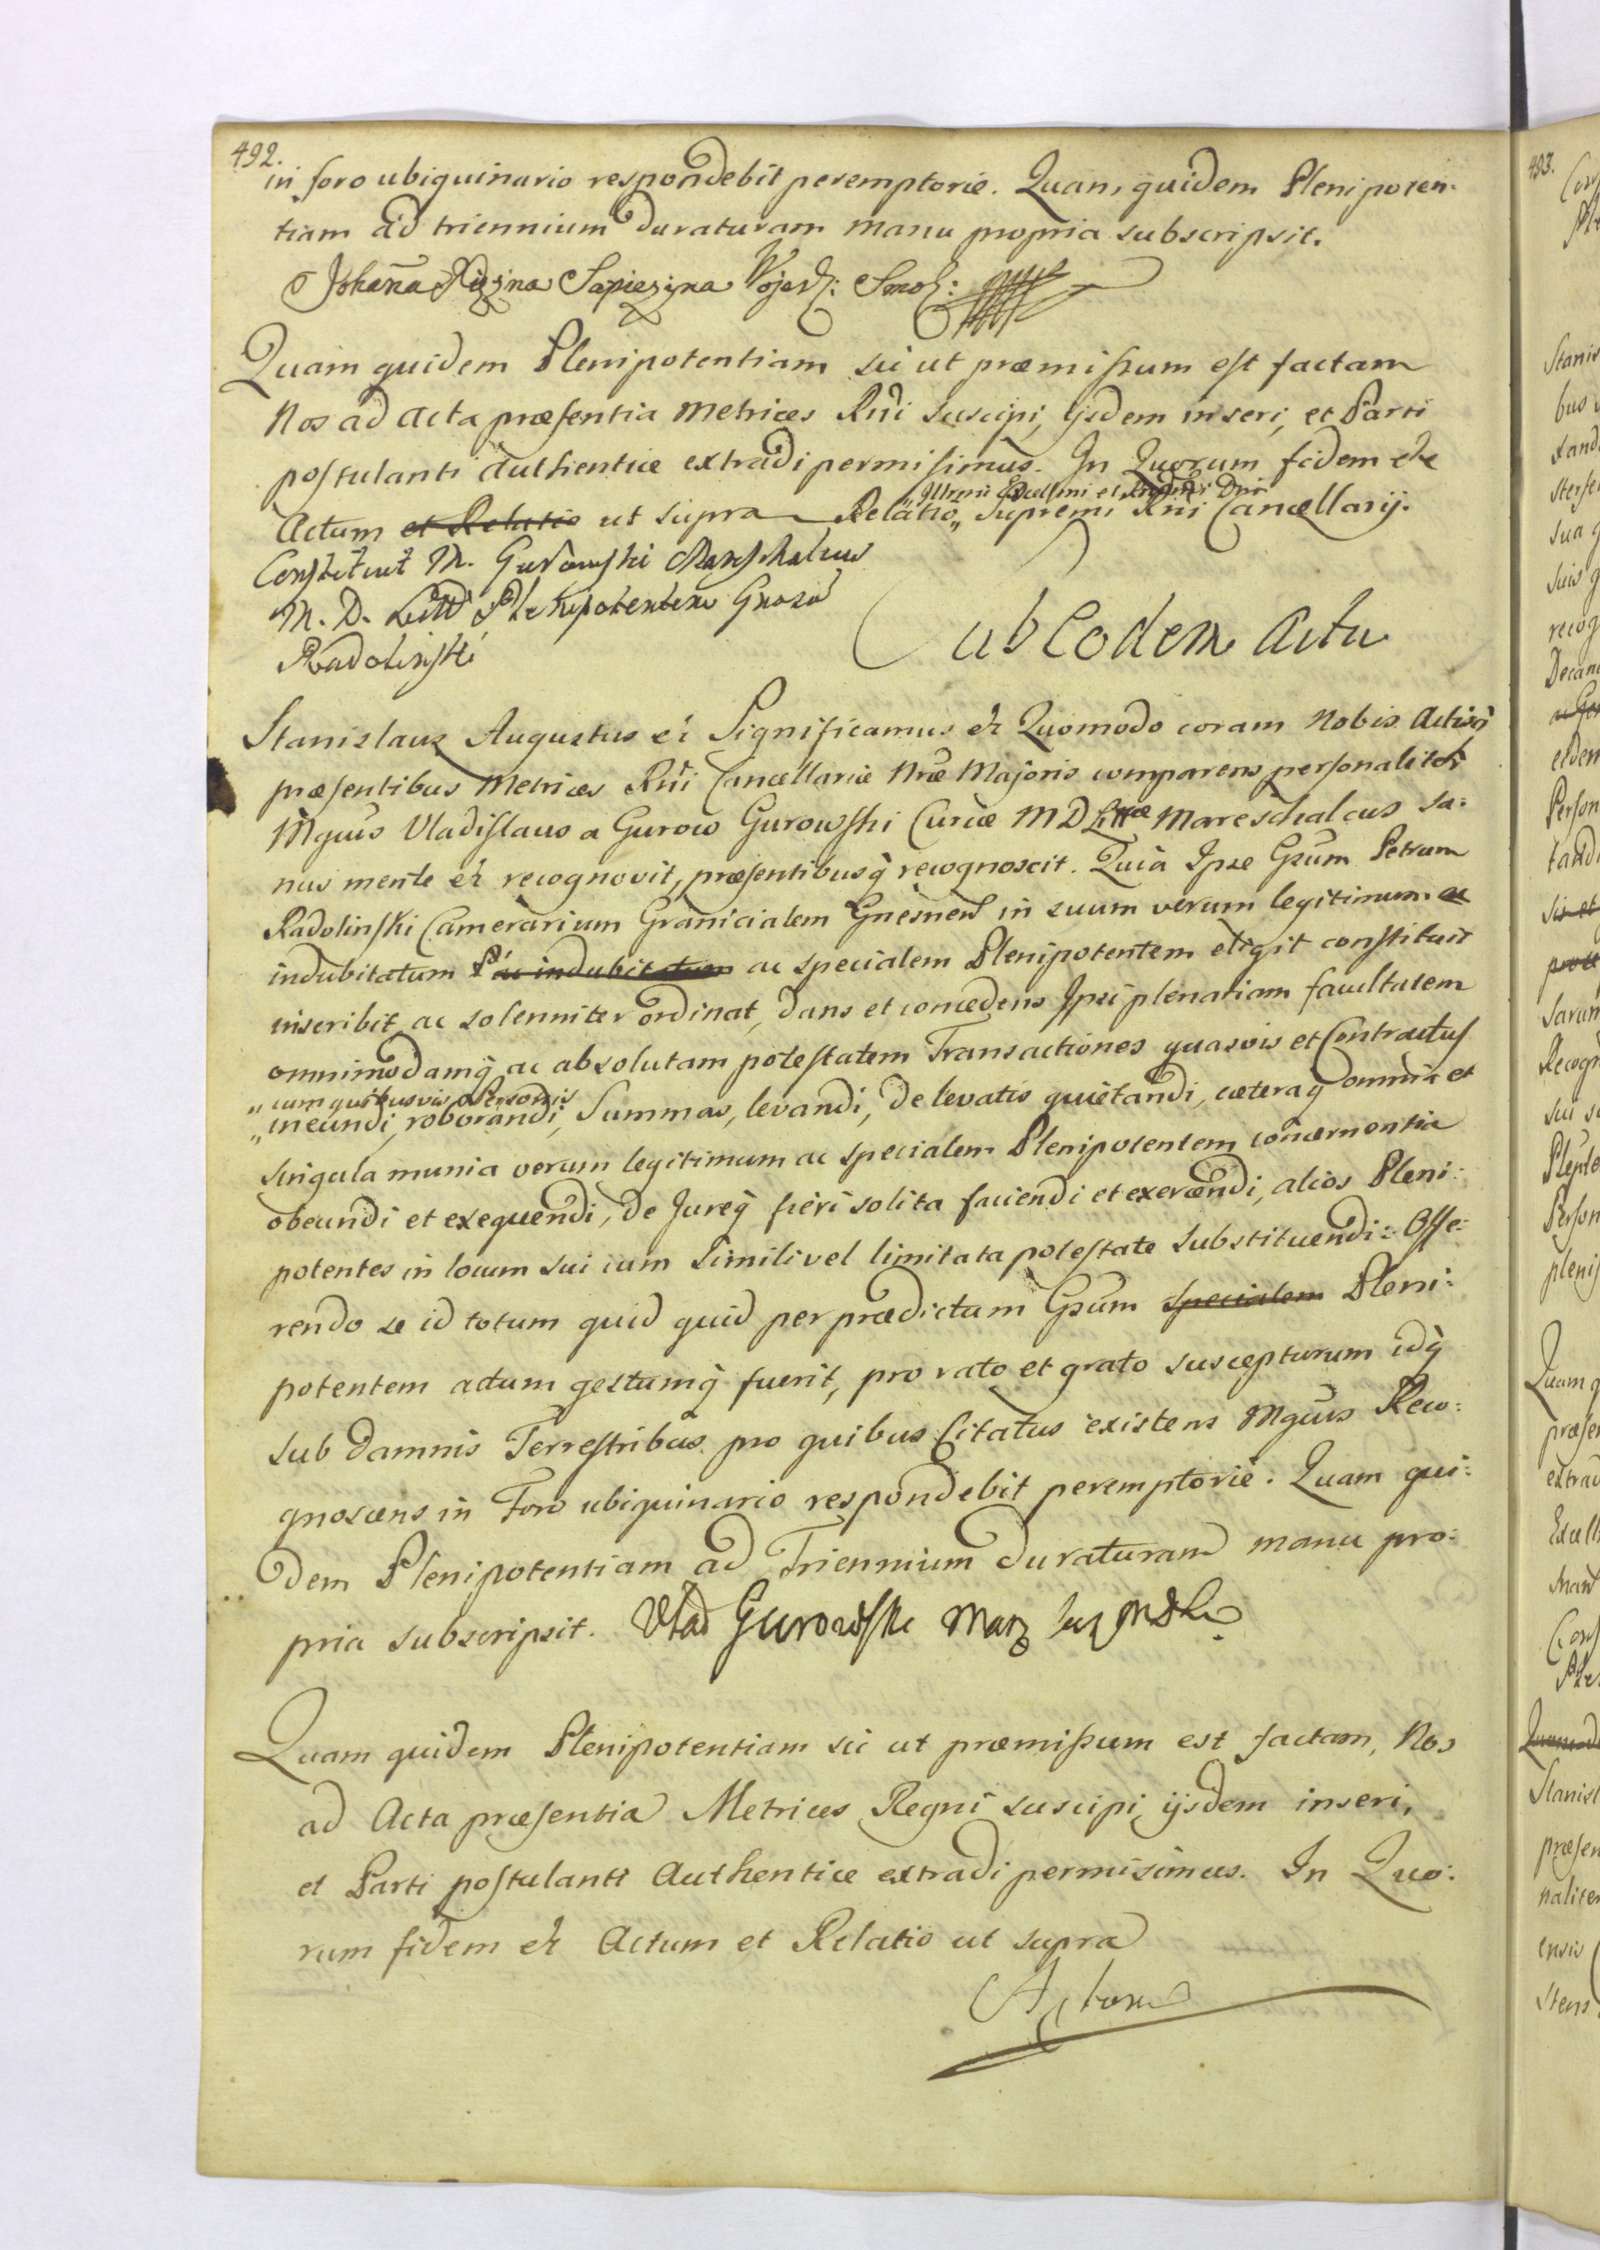 492.
in foro ubiquinario respondebit peremptorie. Quam quidem Plenipoten-
tiam ad triennium duraturam manu propria subscripsit.
Johanna Xiężna Sapieżyna Wojew: Smol:
Quam quidem Plenipotentiam sic ut præmissum est factam
Nos ad Acta præsentia Metrices Rni suscipi, ijsdem inseri, et Parti
postulanti authentice extradi permisimus. In Quorum fidem etc
Illmi Excellmi et Dni
Actum et Relatio ut supra Relatio „ Supremi Rni Cancellarij.
Constituit M. Gurowski Marschalcus
M. D. Litt Plenipotentem Gnosū
Radolinski
Sub Eodem Actu
Stanislaus Augustus etc Significamus etc Quomodo coram Nobis Actisq
præsentibus Metrices Rni Cancellariæ Nræ Majoris comparens personaliter
Mgcus Vladislaus a Gurow Gurowski Curiæ M D Littæ Mareschalcus sa-
nus mente etc recognovit, præsentibusq recognoscit. Quia Ipse Gsum Petrum
Radolinski Camerarium Granicialem Gnesnens in suum verum legitimum ac
indubitatum P ac indubitatum ac specialem Plenipotentem eligit constituit
inscribit ac solenniter ordinat, dans et concedens Ipsi plenariam facultatem
omnimodamq ac absolutam potestatem Transactiones quasvis et Contractus
„ cum quibusvis Personis
„ ineundi, roborandi, Summas, levandi, de levatis quietandi, cæteraq omnia et
singula munia verum legitimum ac specialem Plenipotentem concernentia
obeundi et exequendi, de Jureq fieri solita faciendi et exercendi, alios Pleni-
potentes in locum sui cum simili vel limitata potestate substituendi: Offe-
rendo se id totum quid quid per prædictum Gsum specialem Pleni-
potentem actum gestumq fuerit, pro rato et grato suscepturum idq
sub damnis Terrestribus pro quibus Citatus existens Mgcus Reco-
gnoscens in Foro ubiquinario respondebit peremptorie. Quam qui-
dem Plenipotentiam ad Triennium duraturam manu pro-
pria subscripsit. Vlad Gurowski Marz
Quam quidem Plenipotentiam sic ut præmissum est factam, Nos
ad Acta præsentia Metrices Regni suscipi, ijsdem inseri,
et Parti postulanti Authentice extradi permisimus. In Quo-
rum fidem etc Actum et Relatio ut supra
493.